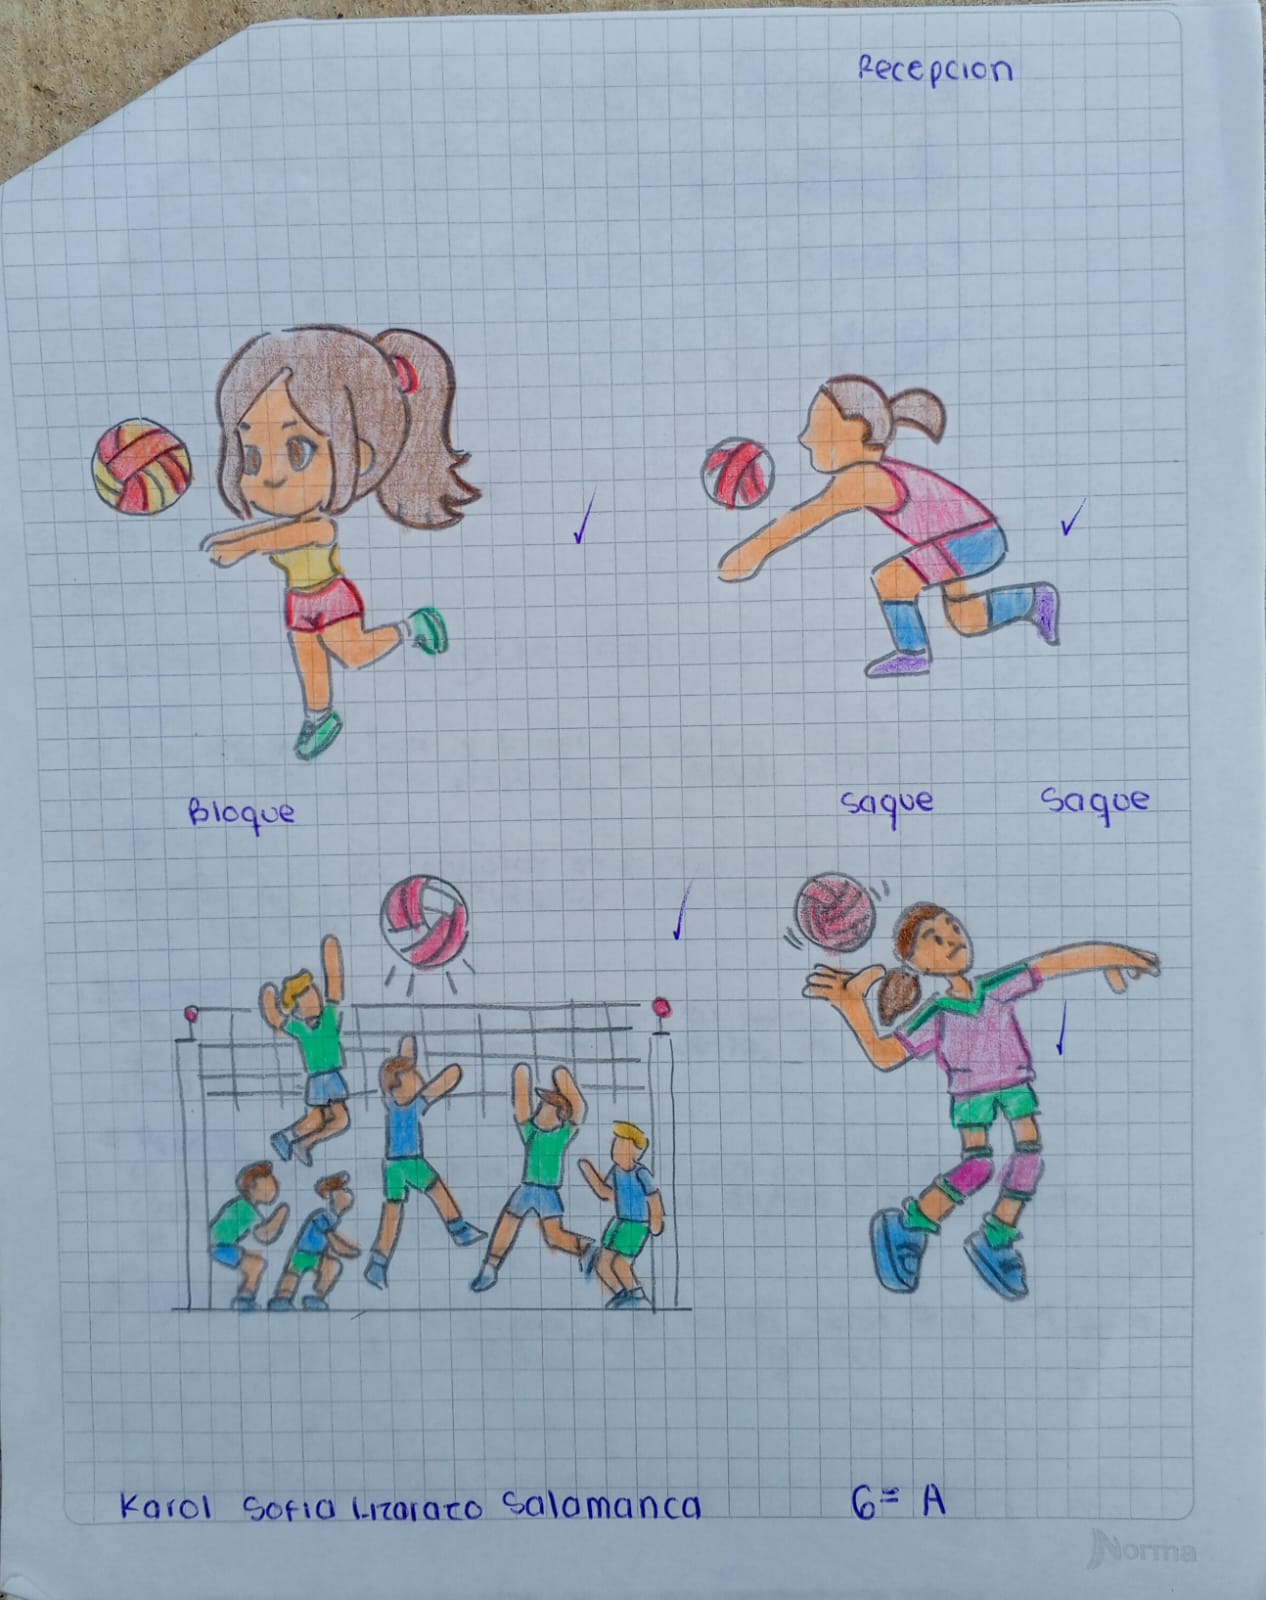 Recepcion
Bloque
Saque Saque
Karol Sofia Lizarazo Salamanca 6= A
Norma